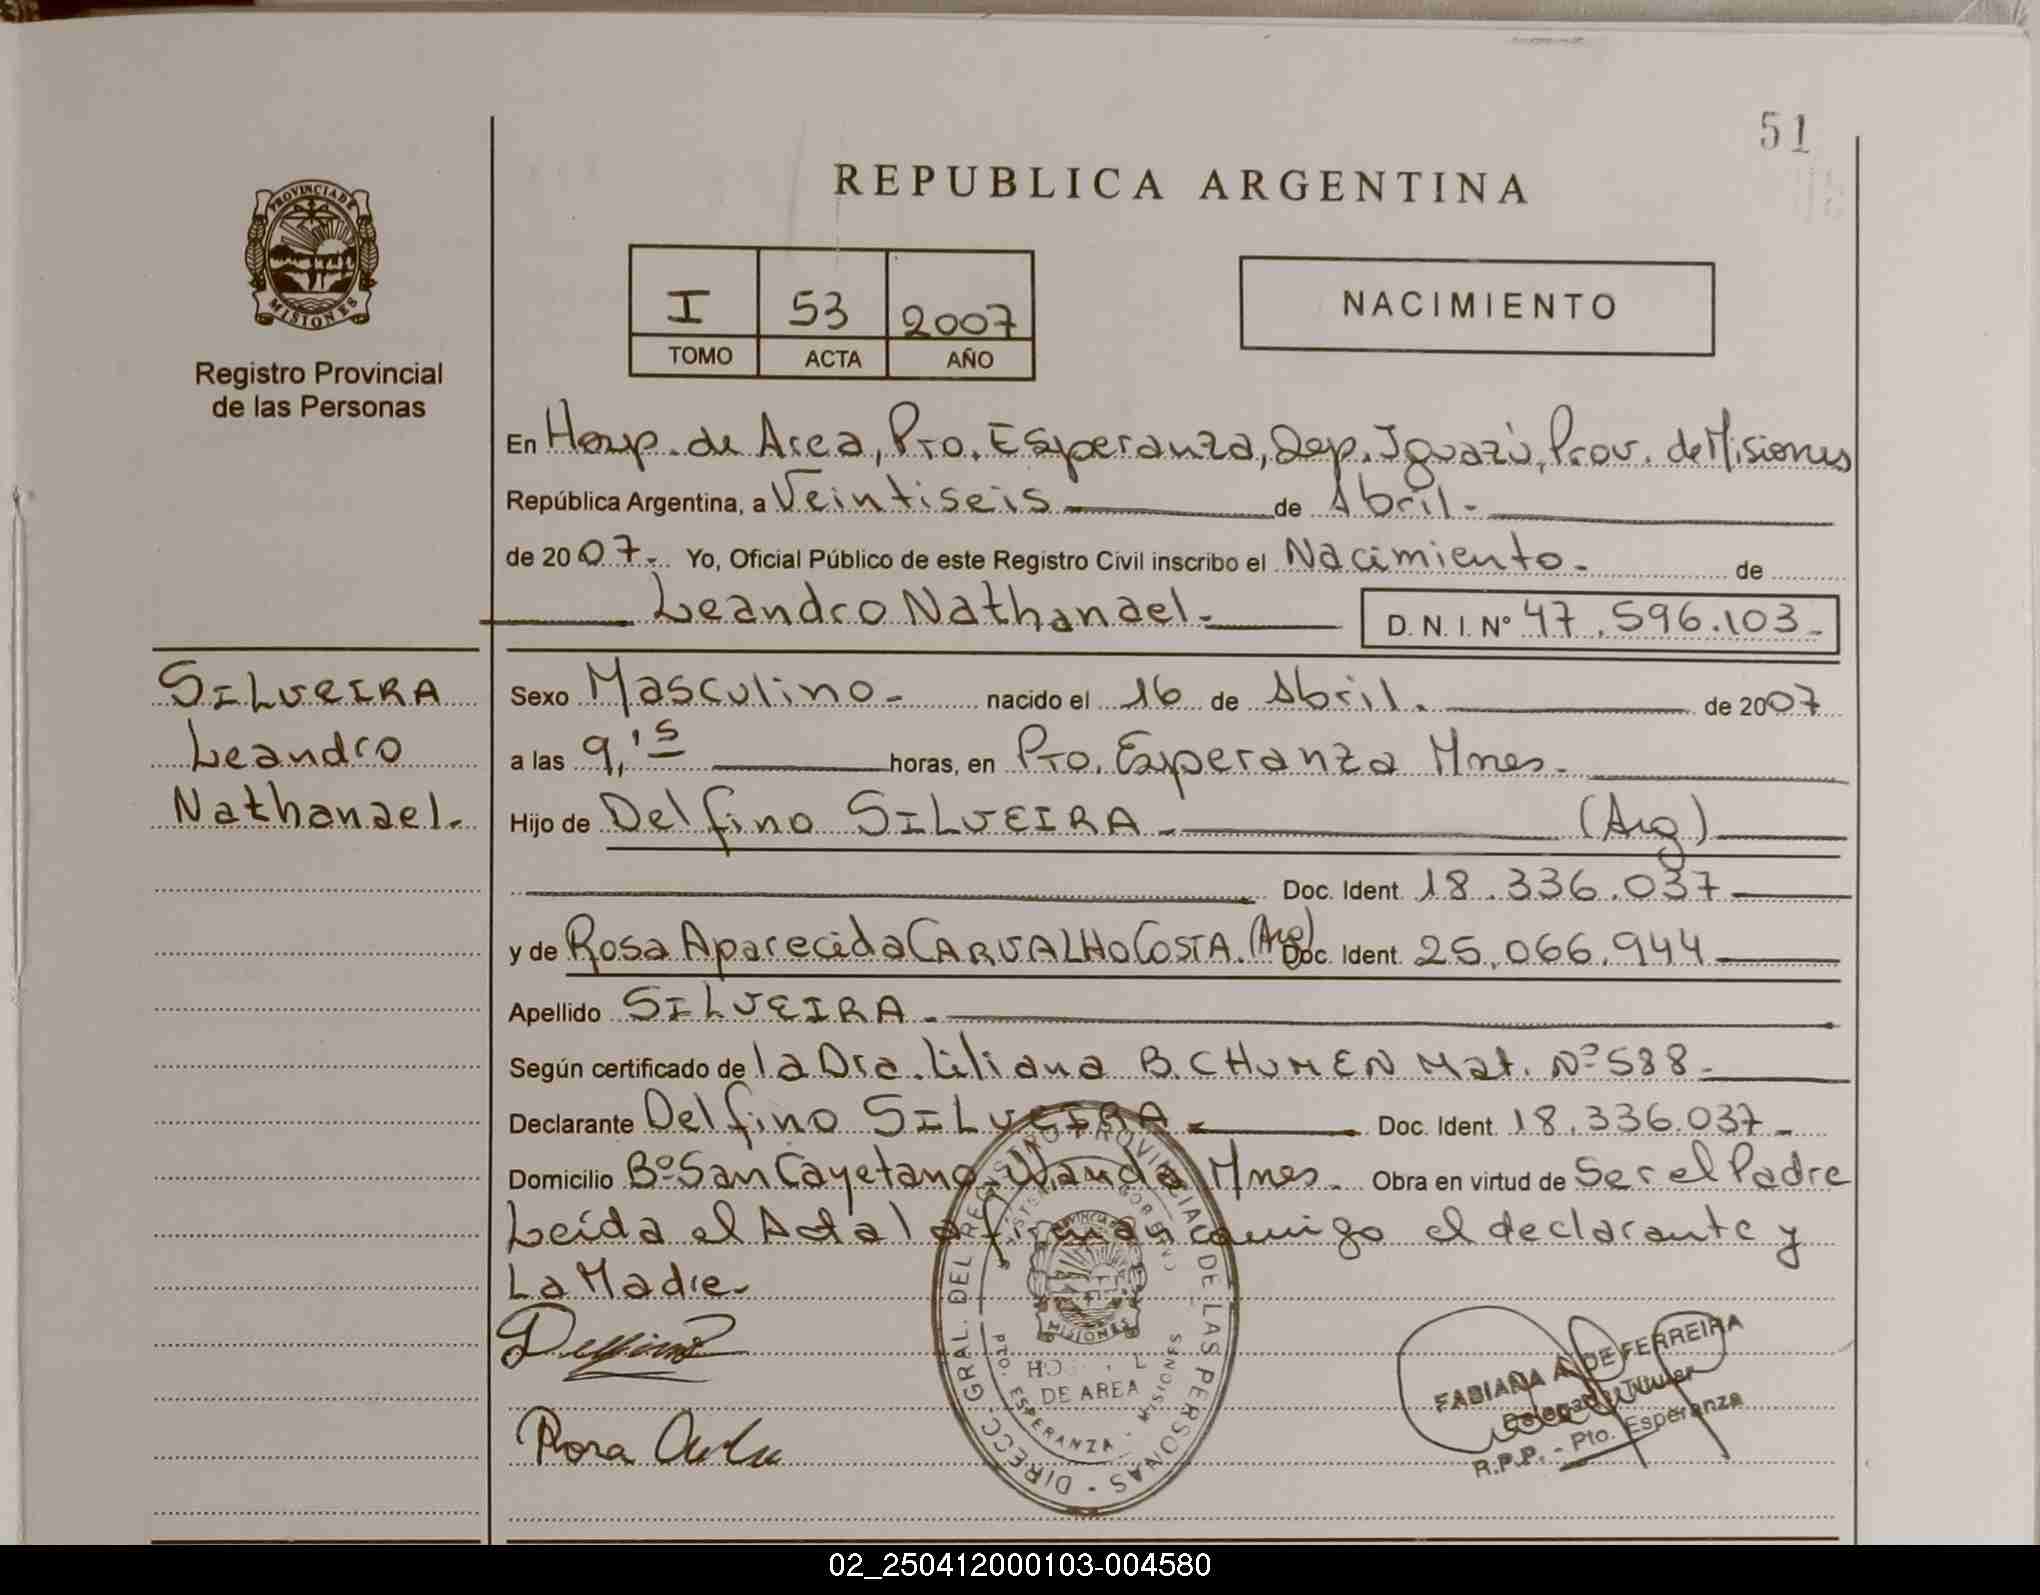 51
REPUBLICA ARGENTINA
PROVINCIA DE
MISIONES
Registro Provincial
de las Personas
I 53 2007
TOMO ACTA AÑO
NACIMIENTO
En Hosp. de Area, Pto. Esperanza, Dep. Iguazú, Prov. de Misiones
República Argentina, a Veintiseis de Abril.
de 2007. Yo, Oficial Público de este Registro Civil inscribo el Nacimiento. de
Leandro Nathanael. D. N. I. Nº 47.596.103.
SILVEIRA
Leandro
Nathanael.
Sexo Masculino. nacido el 16 de Abril. de 2007
a las 9,'s horas, en Pto. Esperanza Mnes.
Hijo de Delfino SILVEIRA. (Arg)
Doc. Ident. 18.336.037
y de Rosa Aparecida CARVALHO COSTA. (Arg) Doc. Ident. 25.066.944
Apellido SILVEIRA.
Según certificado de la Dra. Liliana B. CHUMEN Mat. Nº 588.
Declarante Delfino SILVEIRA Doc. Ident. 18.336.037.
Domicilio Bº San Cayetano. Wanda Mnes. Obra en virtud de Ser el Padre
Leída el Acta la firman conmigo el declarante y
La Madre.
DIRECC. GRAL. DEL REGISTRO PROVINCIAL DE LAS PERSONAS
MISIONES
DE AREA
PTO. ESPERANZA - MISIONES
Delfino
Rosa
FABIANA A. DE FERREIRA
Delegada Titular
R.P.P. - Pto. Esperanza
02_250412000103-004580